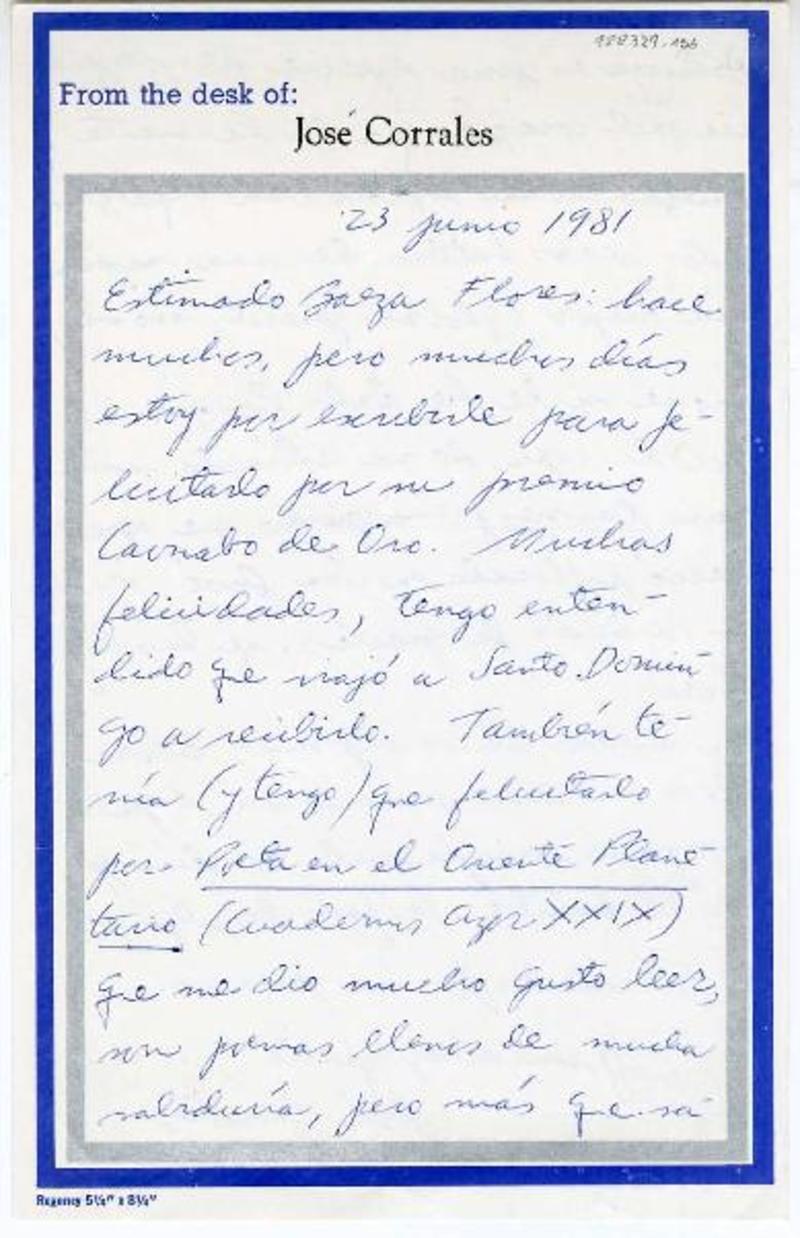 188329.156
From the desk of:
José Corrales
23 junio 1981
Estimado Baeza Flores: hace
muchos, pero muchos días
estoy por escribirle para fe-
licitarlo por su premio
Caonabo de Oro. Muchas
felicidades, tengo enten-
dido que viajó a Santo Domin-
go a recibirlo. También te-
nía (y tengo) que felicitarlo
por Poeta en el Oriente Plane-
tario (Cuadernos Azor XXIX)
que me dio mucho gusto leer,
son poemas llenos de mucha
sabiduría, pero más que sa-
Regency 5¼" x 8¼"